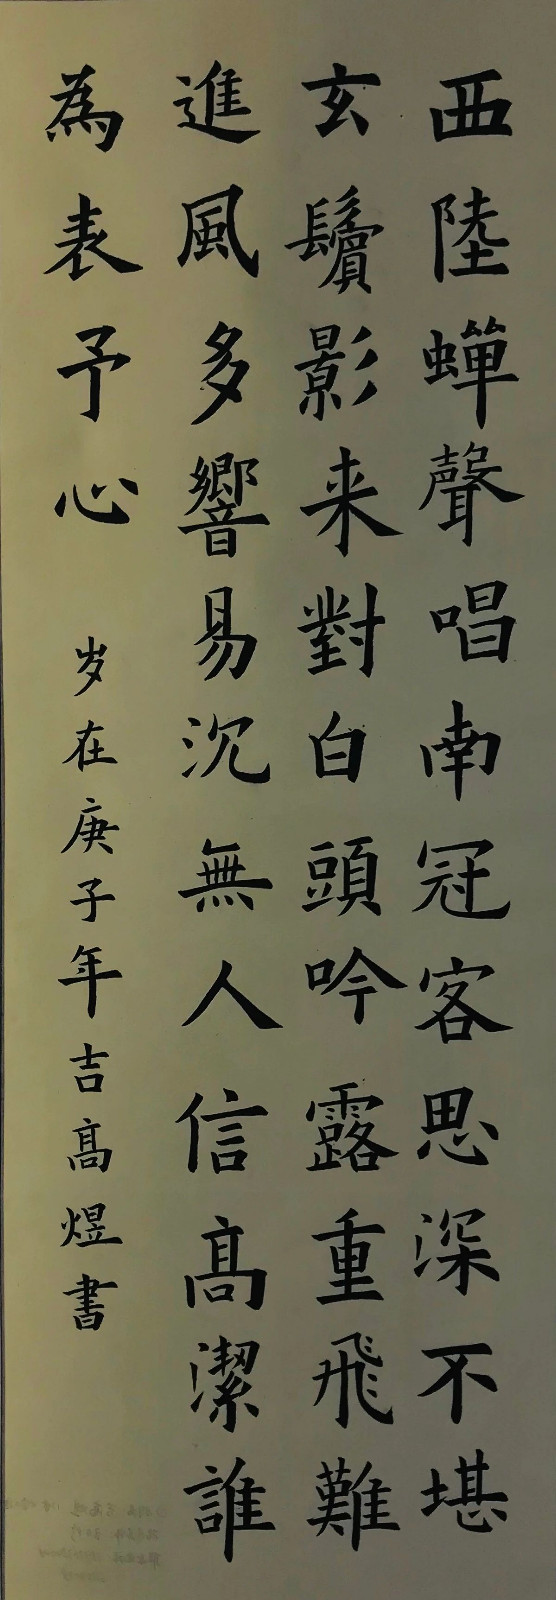 西陸蟬聲唱南冠客思深不堪
玄鬢影来對白頭吟露重飛難
進風多響易沉無人信高潔誰
為表予心
岁在庚子年吉高煜書